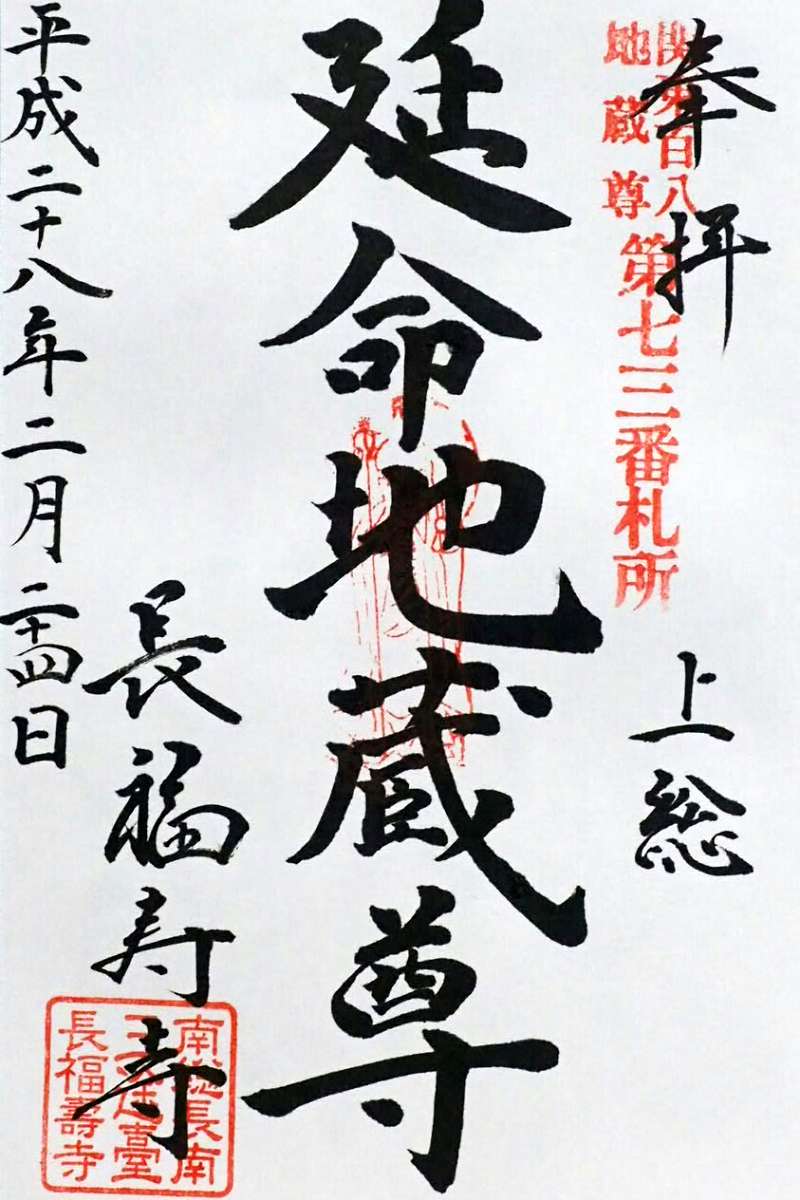 奉拝
関東百八
地蔵尊
第七三番札所
上総
延命地蔵尊
長福寿寺
南総長南
三途臺
長福壽寺
平成二十八年二月二十四日